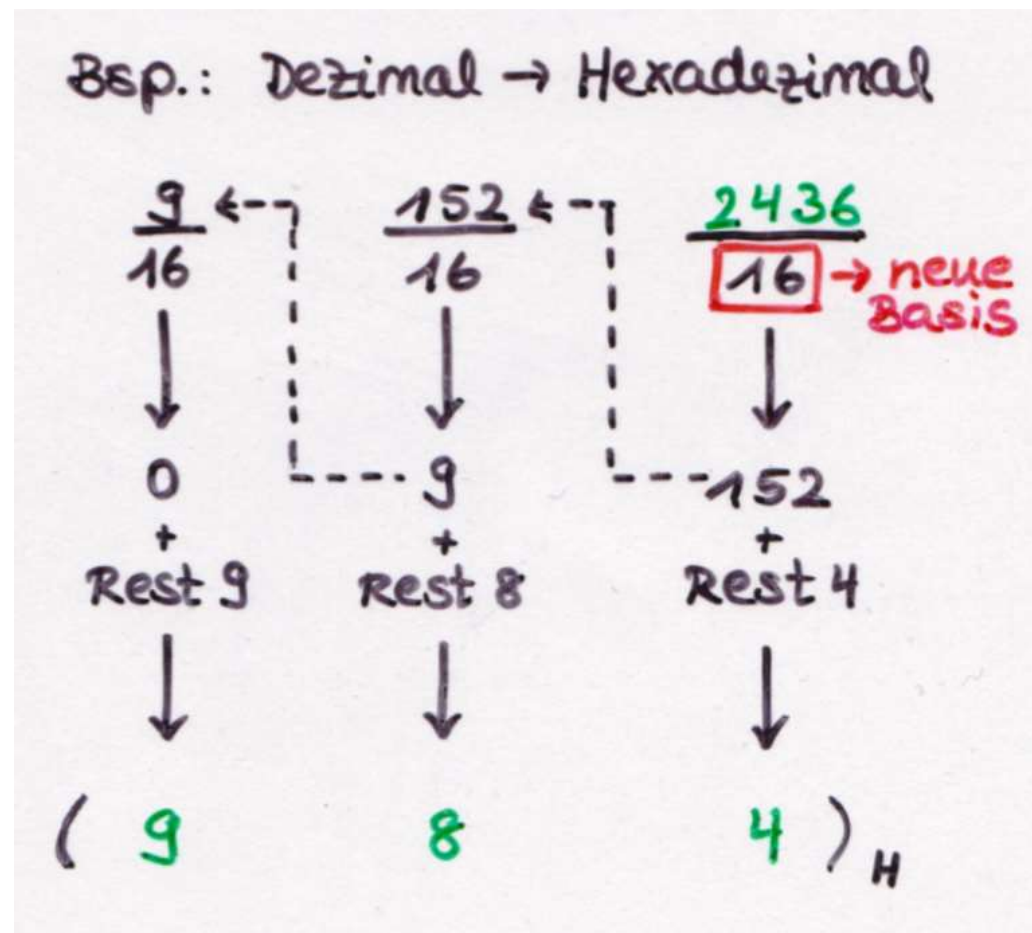 Bsp.: Dezimal → Hexadezimal
9 152 2436
16 16 16 → neue
Basis
0 9 152
+ + +
Rest 9 Rest 8 Rest 4
( 9 8 4 ) H